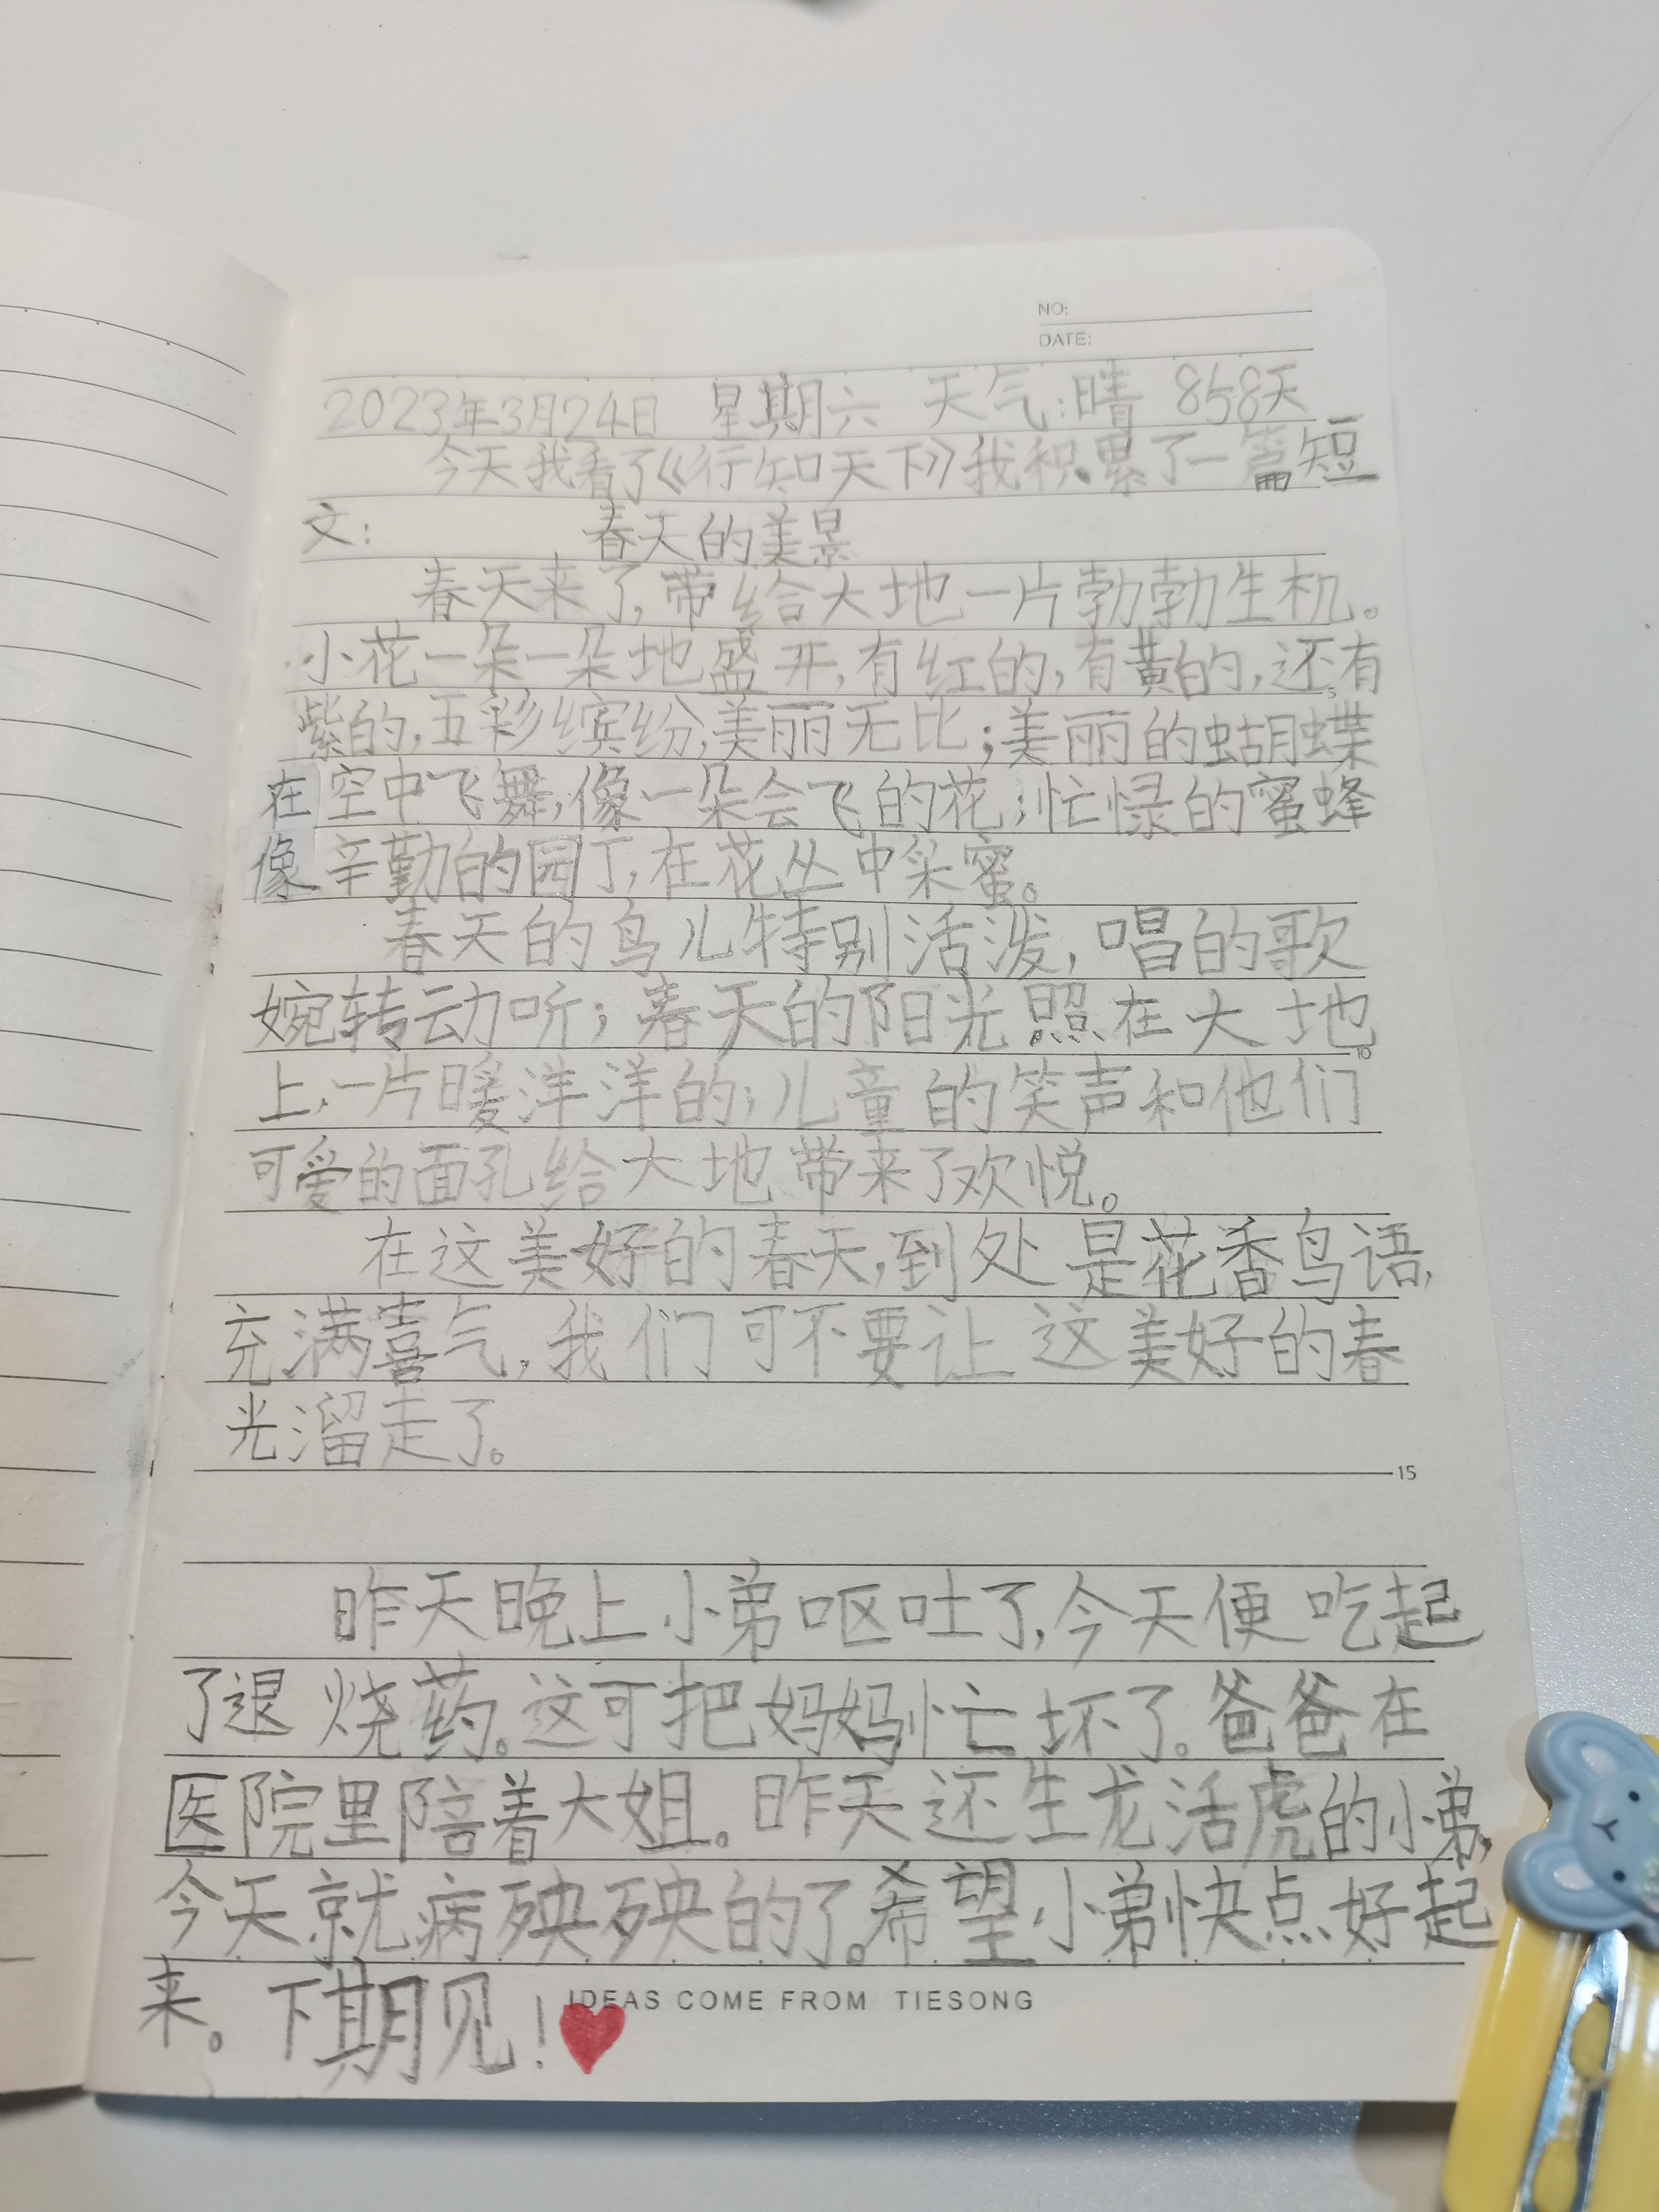 NO:
DATE:
2023年3月24日 星期六 天气:晴 858天
今天我看了《行知天下》我积累了一篇短
文: 春天的美景
春天来了,带给大地一片勃勃生机。
小花一朵一朵地盛开,有红的,有黄的,还有
紫的,五彩缤纷,美丽无比;美丽的蝴蝶
在空中飞舞,像一朵会飞的花;忙碌的蜜蜂
像辛勤的园丁,在花丛中采蜜。
春天的鸟儿特别活泼,唱的歌
婉转动听;春天的阳光照在大地
上,一片暖洋洋的;儿童的笑声和他们
可爱的面孔给大地带来了欢悦。
在这美好的春天,到处是花香鸟语,
充满喜气,我们可不要让这美好的春
光溜走了。
昨天晚上小弟呕吐了,今天便吃起
了退烧药。这可把妈妈忙坏了。爸爸在
医院里陪着大姐。昨天还生龙活虎的小弟,
今天就病殃殃的了。希望小弟快点好起
来。下期见!
IDEAS COME FROM TIESONG
5
10
15